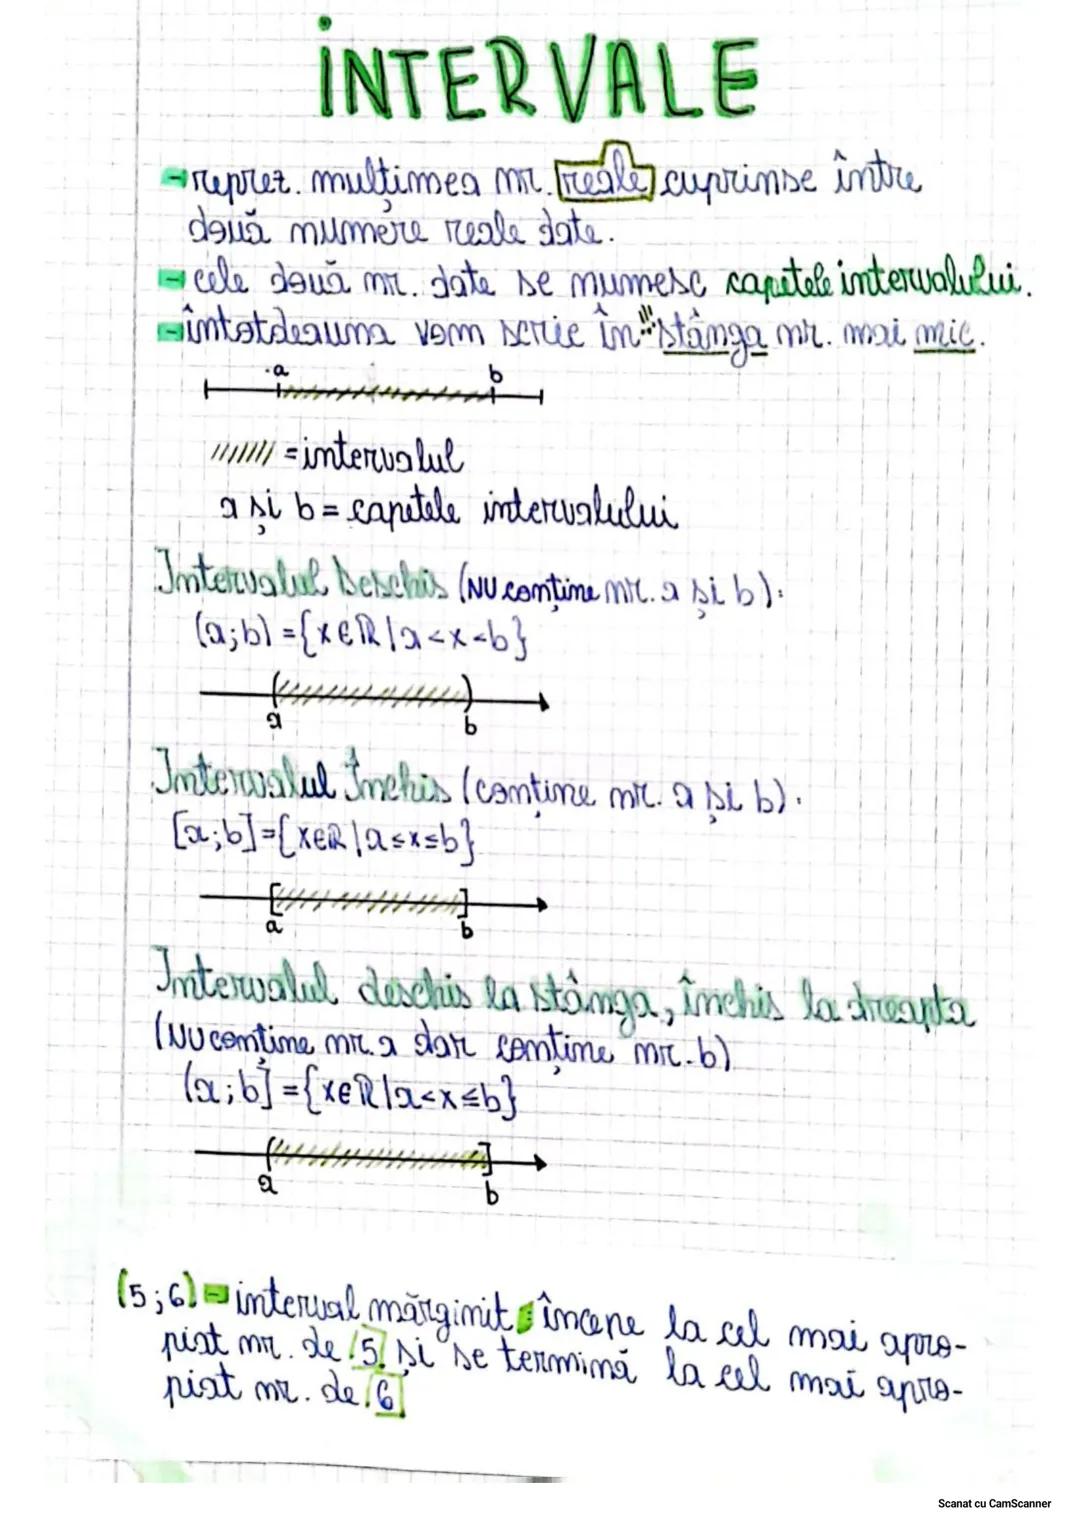 INTERVALE
-reprez. mulțimea nr. reale cuprinse între
două numere reale date.
-cele două nr. date se numesc capetele intervalului.
-întotdeauna vom scrie în stânga nr. mai mic.
a b
=intervalul
a și b = capetele intervalului
Intervalul Deschis (NU conține nr. a și b):
(a;b) ={x∈ℝ|a<x<b}
a b
Intervalul Închis (conține nr. a și b).
[a;b]={x∈ℝ|a≤x≤b}
a b
Intervalul deschis la stânga, închis la dreapta
(NU conține nr. a dar conține nr. b)
(a;b] ={x∈ℝ|a<x≤b}
a b
(5;6) - interval mărginit încene la cel mai apro-
piat nr. de 5 și se termină la cel mai apro-
piat nr. de 6
Scanat cu CamScanner